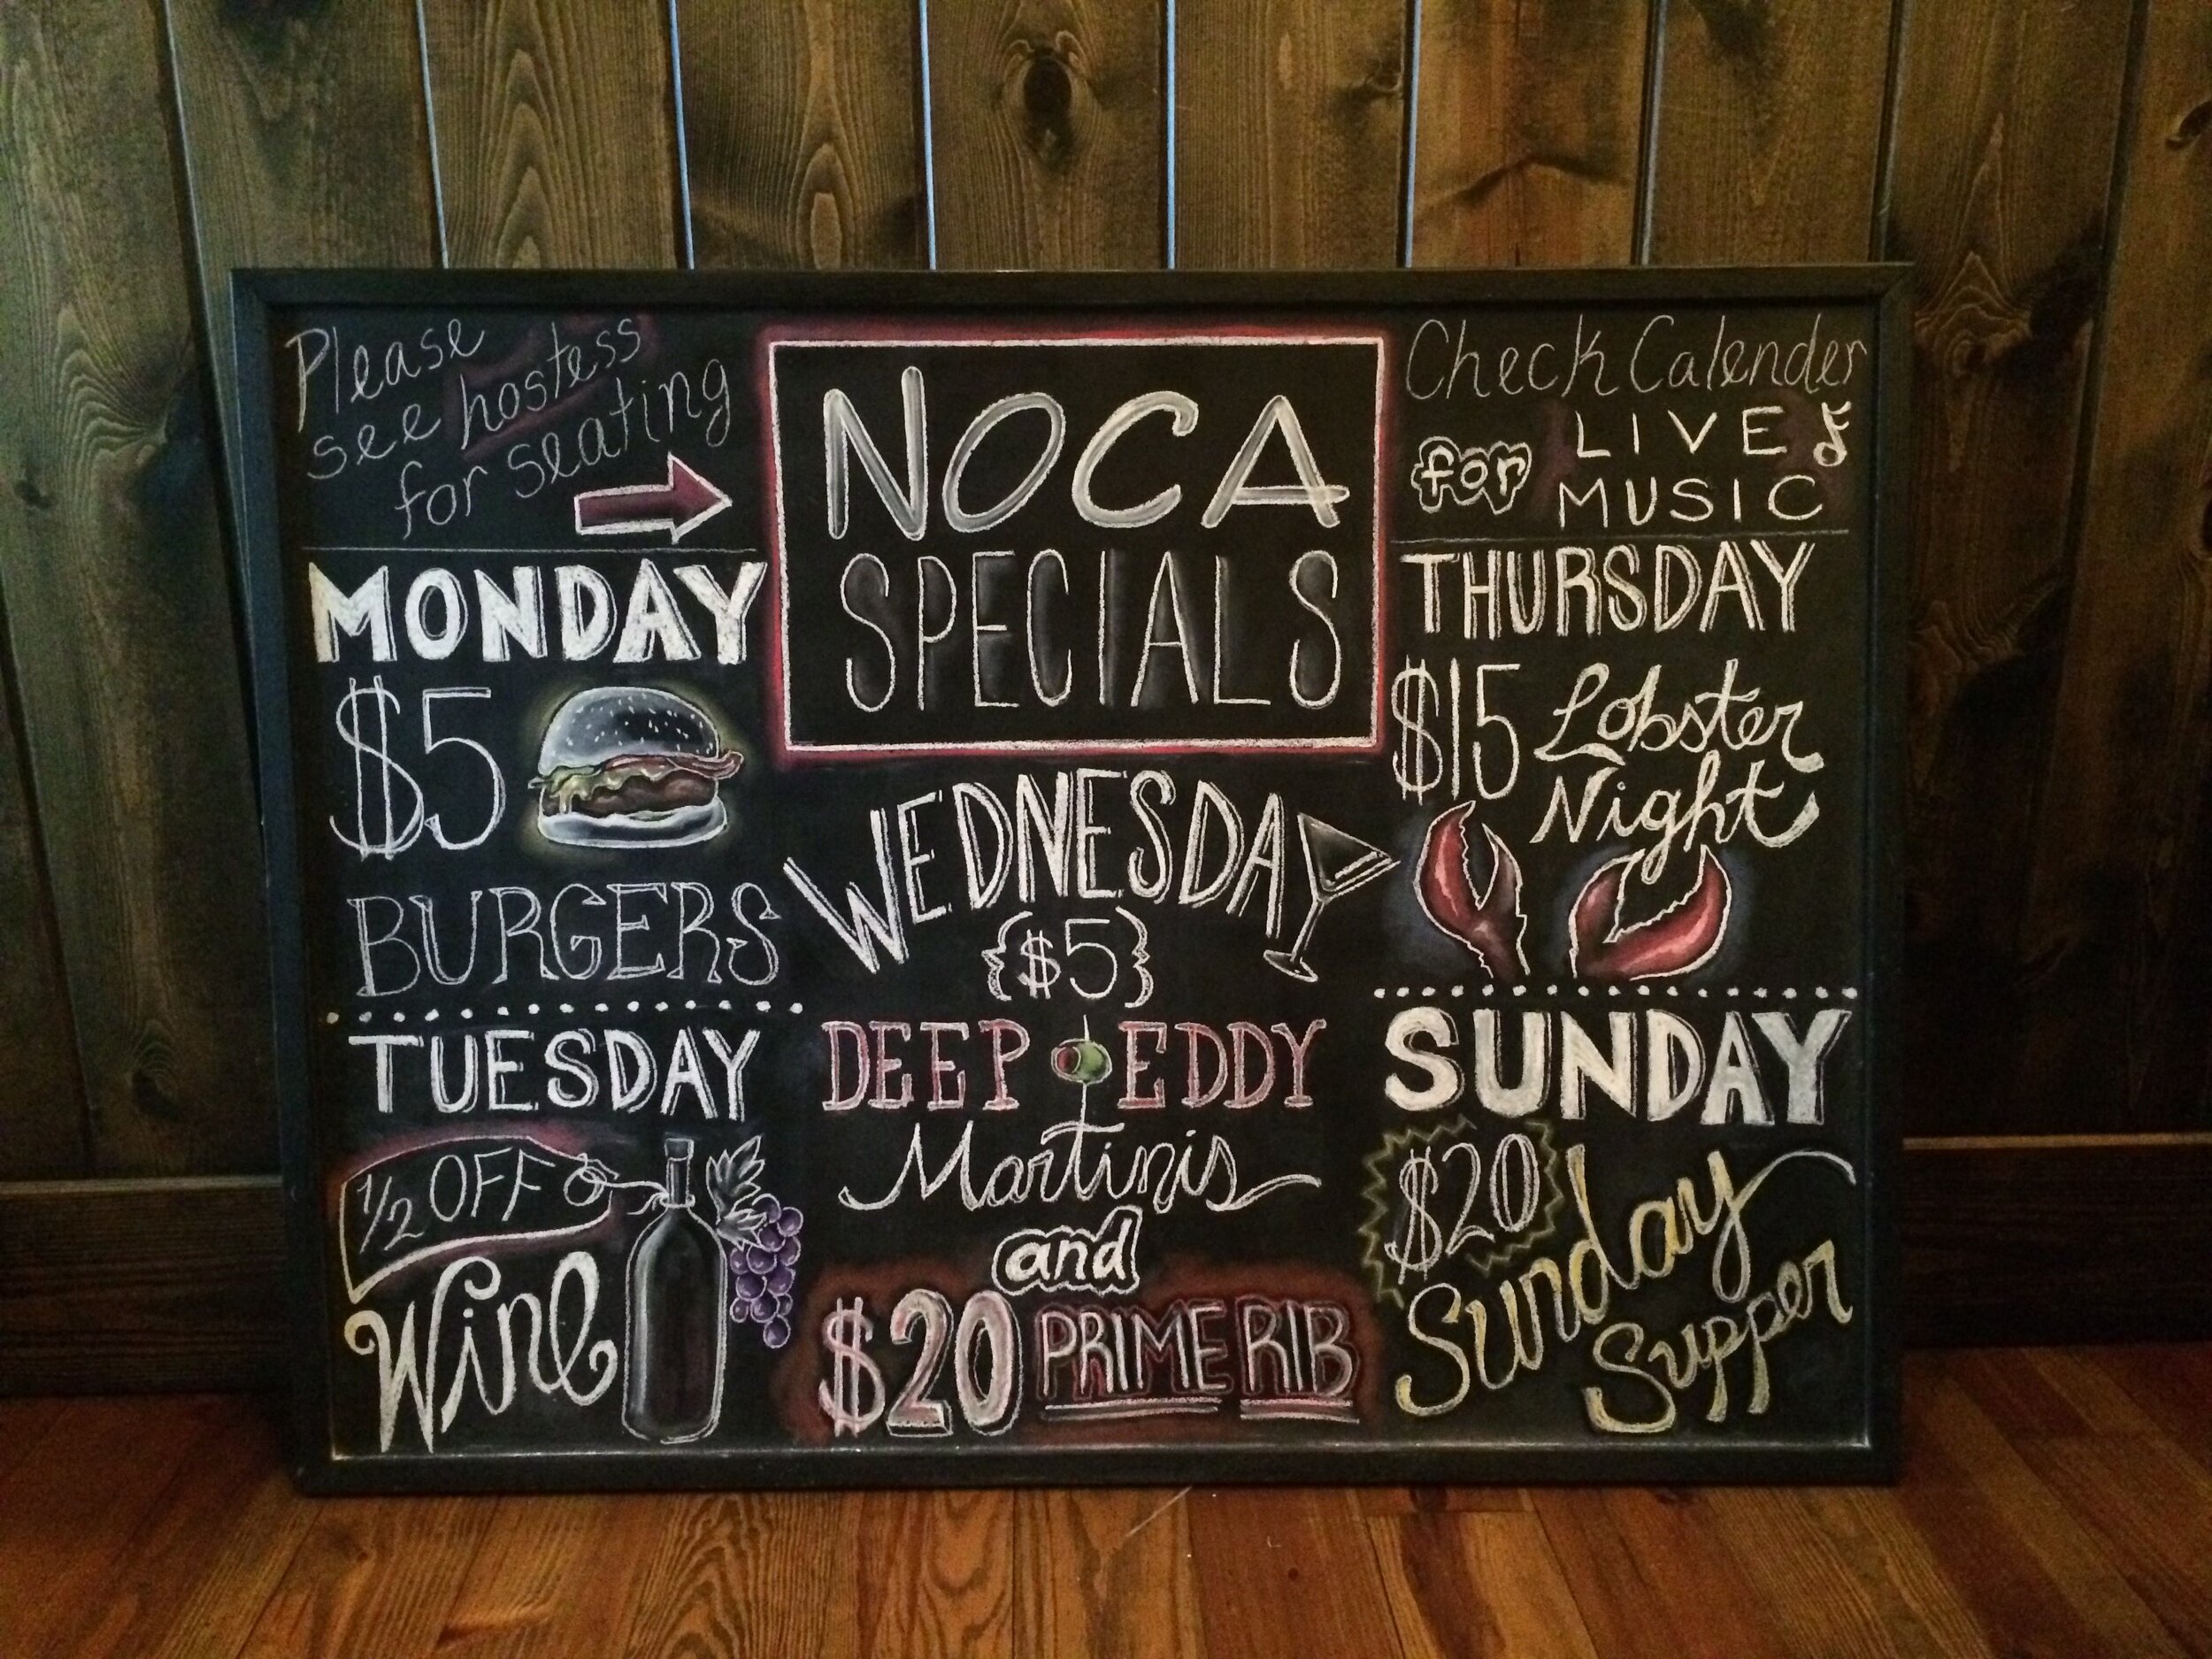 Please
see hostess
for seating
NOCA
SPECIALS
Check Calender
for LIVE
MUSIC
MONDAY
$5
BURGERS
TUESDAY
1/2 OFF
Wine
WEDNESDAY
{$5}
DEEP EDDY
Martinis
and
$20 PRIME RIB
THURSDAY
$15 Lobster
Night
SUNDAY
$20 Sunday
Supper